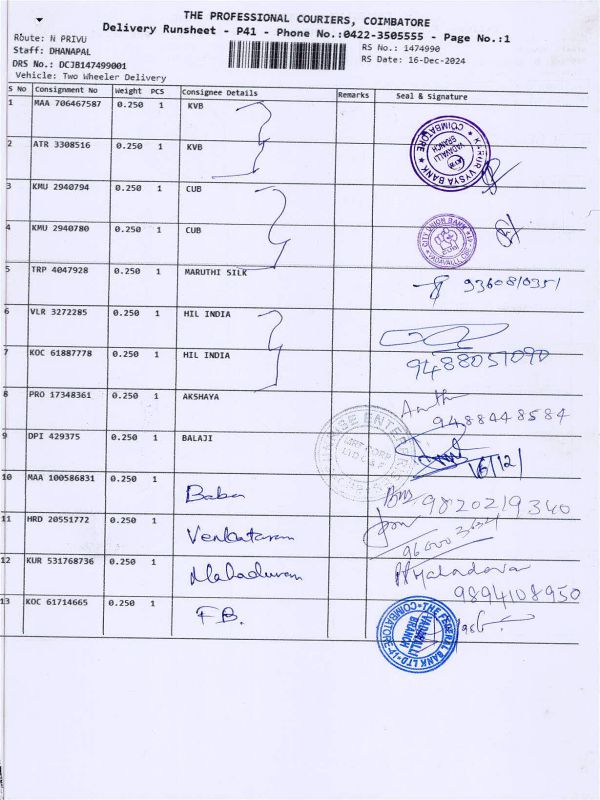 THE PROFESSIONAL COURIERS, COIMBATORE
Delivery Runsheet - P41 - Phone No.:0422-3505555 - Page No.:1
Route: N PRIVU
RS No.: 1474990
Staff: DHANAPAL
RS Date: 16-Dec-2024
DRS No.: DCJB147499001
Vehicle: Two Wheeler Delivery
S No Consignment No Weight PCS Consignee Details Remarks Seal & Signature
1 MAA 706467587 0.250 1 KVB
2 ATR 3308516 0.250 1 KVB
KARUR VYSYA BANK COIMBATORE VADAVALLI BRANCH
3 KMU 2940794 0.250 1 CUB
4 KMU 2940780 0.250 1 CUB
CITY UNION BANK
5 TRP 4047928 0.250 1 MARUTHI SILK 9360810351
6 VLR 3272285 0.250 1 HIL INDIA
7 KOC 61887778 0.250 1 HIL INDIA 9488051090
8 PRO 17348361 0.250 1 AKSHAYA
9488448584
9 DPI 429375 0.250 1 BALAJI
16/12/
10 MAA 100586831 0.250 1 Babu 9820219340
11 HRD 20551772 0.250 1 Venkataram
12 KUR 531768736 0.250 1 Mahadevan Mahadevan
9894108950
13 KOC 61714665 0.250 1 F.B.
THE FEDERAL BANK LTD COIMBATORE-41 VADAVALLI BRANCH